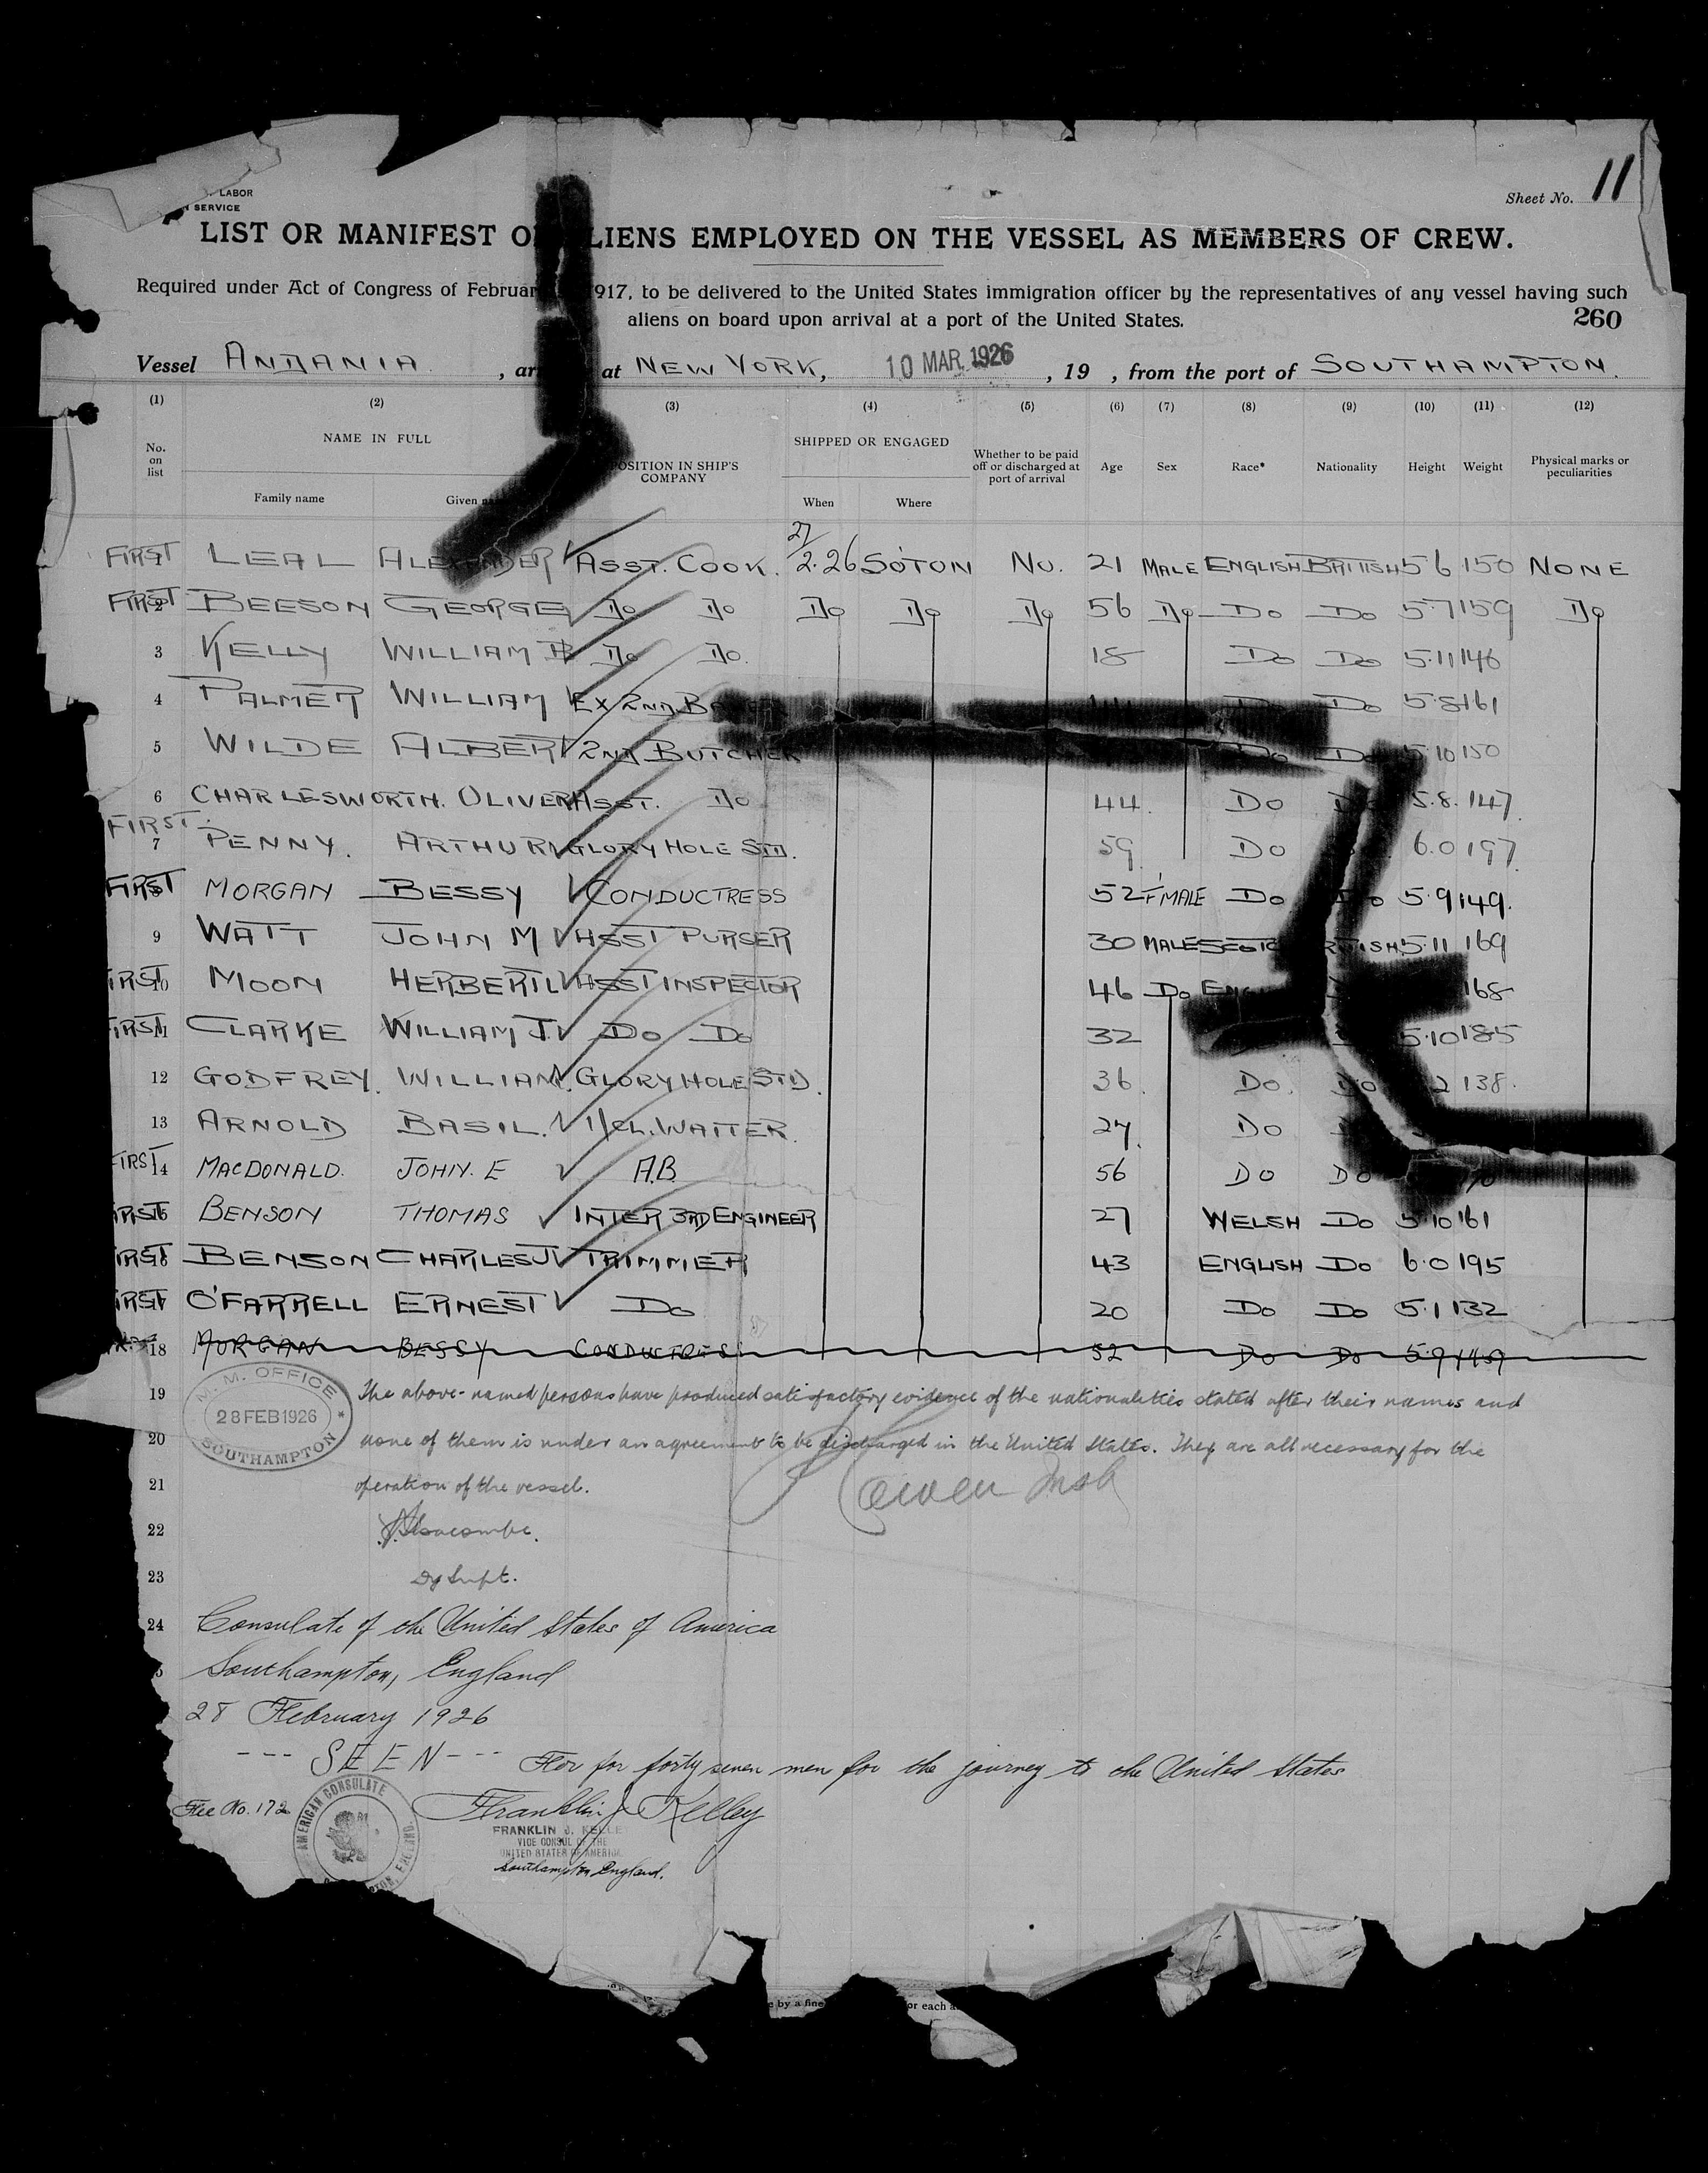 LABOR
SERVICE
Sheet No. 11
LIST OR MANIFEST O LIENS EMPLOYED ON THE VESSEL AS MEMBERS OF CREW.
Required under Act of Congress of Februar 917, to be delivered to the United States immigration officer by the representatives of any vessel having such
aliens on board upon arrival at a port of the United States.
260
Vessel ANDANIA , ar at NEW YORK, 10 MAR. 1926 , 19 , from the port of SOUTHAMPTON.
(1) (2) (3) (4) (5) (6) (7) (8) (9) (10) (11) (12)
No. on list NAME IN FULL POSITION IN SHIP'S COMPANY SHIPPED OR ENGAGED Whether to be paid off or discharged at port of arrival Age Sex Race* Nationality Height Weight Physical marks or peculiarities
Family name Given When Where
FIRST 1 LEAL ALEXANDER ASST. COOK. 27/2.26 SO'TON NO. 21 MALE ENGLISH BRITISH 5 6 150 NONE
FIRST 2 BEESON GEORGE DO DO DO DO DO 56 DO DO DO 5.7 159 DO
3 KELLY WILLIAM DO DO. 18 DO DO 5.11 146
4 PALMER WILLIAM EX 2ND BAKER DO DO 5.8 161
5 WILDE ALBERT 2ND BUTCHER DO DO 5.10 150
6 CHARLESWORTH. OLIVER ASST. DO 44. DO 5.8. 147
FIRST. 7 PENNY. ARTHUR GLORY HOLE STD. 59. DO 6.0 197.
FIRST 8 MORGAN BESSY CONDUCTRESS 52 F'MALE DO DO 5.9 149.
9 WATT JOHN M ASST PURSER 30 MALE SCOTCH BRITISH 5.11 169
FIRST 10 MOON HERBERT L ASST INSPECTOR 46 DO ENG 168
FIRST 11 CLARKE WILLIAM J. DO DO 32 5.10 185
12 GODFREY. WILLIAM. GLORY HOLE STD. 36. DO. DO 2 138.
13 ARNOLD BASIL. 1/CL. WAITER. 27. DO
FIRST 14 MACDONALD. JOHN. E A.B. 56 DO DO
FIRST 15 BENSON THOMAS INTER 3RD ENGINEER 27 WELSH DO 5.10 161
FIRST 16 BENSON CHARLES J TRIMMER 43 ENGLISH DO 6.0 195
FIRST 17 O'FARRELL ERNEST DO 20 DO DO 5.1 132
18 MORGAN BESSY CONDUCTRESS 52 DO DO 5.9 149
19 The above-named persons have produced satisfactory evidence of the nationalities stated after their names and
20 none of them is under an agreement to be discharged in the United States. They are all necessary for the
21 operation of the vessel.
M. M. OFFICE
28 FEB 1926
SOUTHAMPTON
22
23 Dy Supt.
24 Consulate of the United States of America
Southampton, England
28 February 1926
--- SEEN --- For forty seven men for the journey to the United States
Fee No. 172 Franklin J. Kelley
AMERICAN CONSULATE
FRANKLIN J. KELLE
VICE CONSUL OF THE
UNITED STATES OF AMERICA
Southampton England.
e by a fine or each a